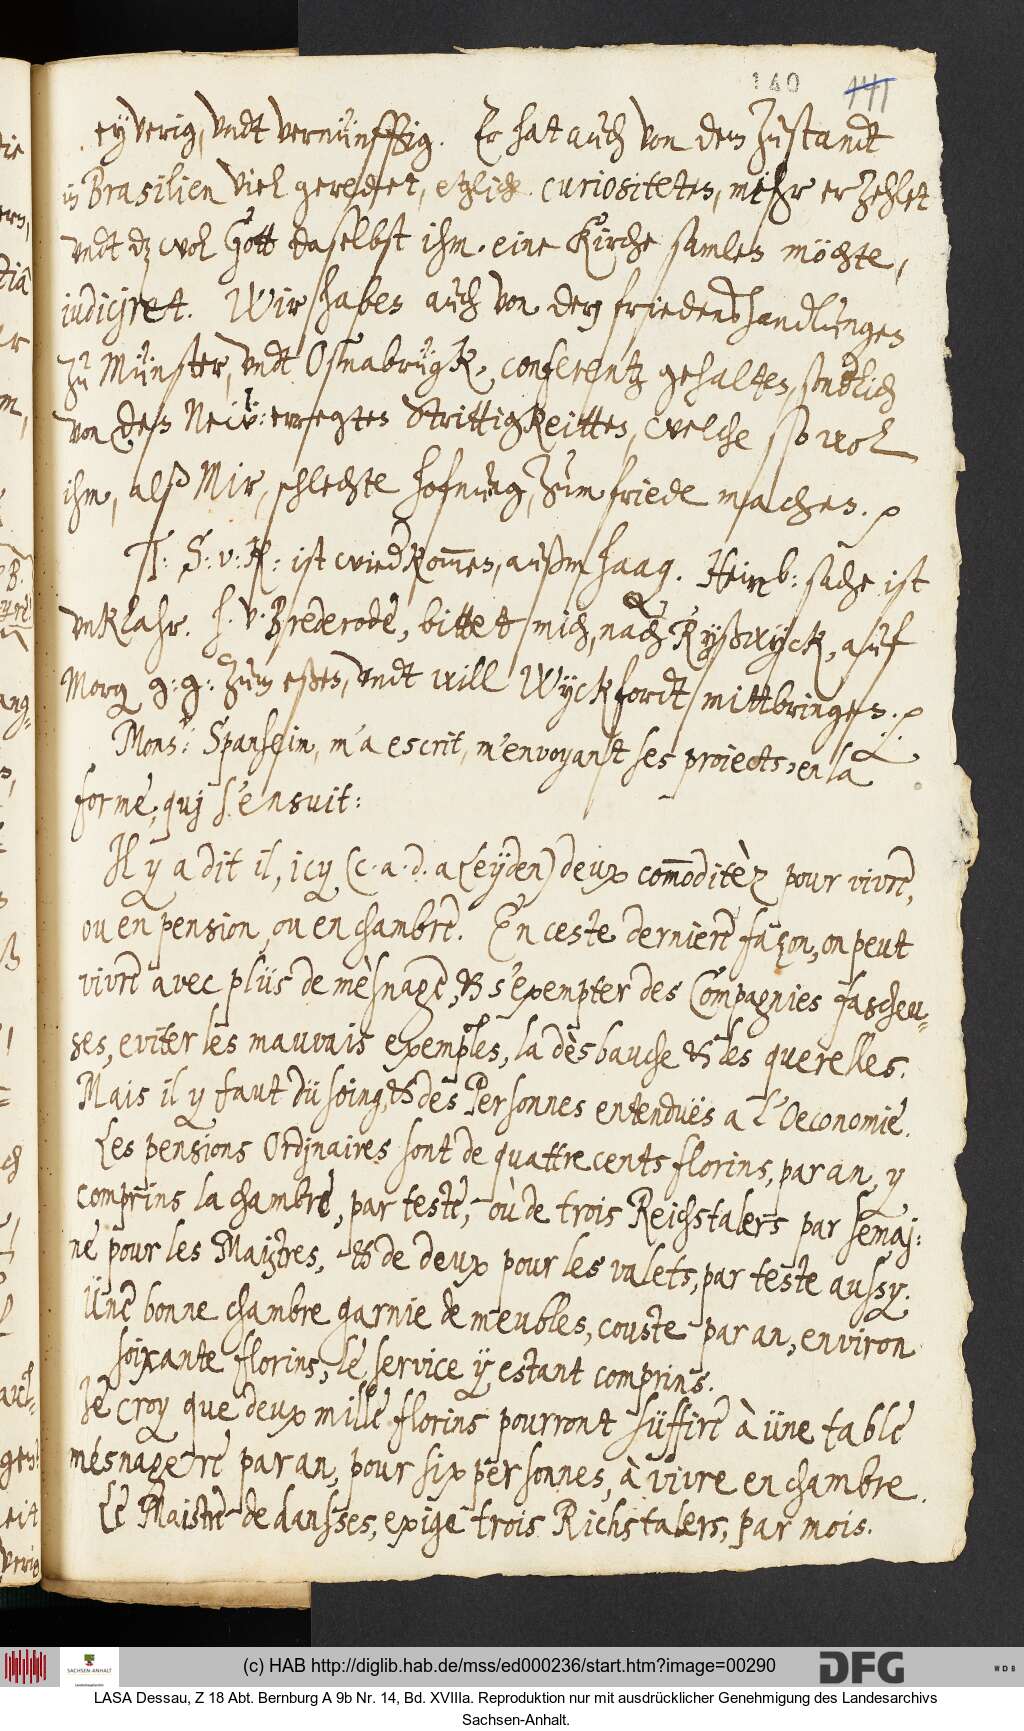 140 141
eyverig, vndt vernünfftig. Er hat auch von dem Zustandt
in Brasilien viel geredet, etzlich curiositeten, mihr erzehlet
vndt dz wol Gott daselbst ihm eine Kirche samlen möchte,
iudiciret. Wir haben auch von den friedenshandlungen
zu Münster, vndt Oßnabrügk, conferentz gehalten, sonderlich
von den Neẅ: erregten Strittigkeitten, welche so wol
ihm, alß Mir, schlechte hofnung, zum friede machen. p
T: S: v: K: ist wiedkom̅en, außm Haag. Heinb: sache ist
vnklahr. H. v. Brederode, bittet mich, nach Ryßwyck, auf
Morg g: g: zum eßen, vndt will Wyckfordt mittbringen. p
Mons: Spanhein, m'a escrit, m'envoyant ses proiects, en la
forme, quj s'ensuit:
Il y a dit il, icy (c. a. d. a Leyden) deux com̅oditèz pour vivre,
ou en pension, ou en chambre. En ceste derniere façon, on peut
vivre avec plüs de mèsnage, & s'exempter des Compagnies fascheu-
ses, eviter les mauvais exemples, la dèsbauche & les querelles.
Mais il y faut dü soing, & des Personnes entenduës a l'Oeconomie.
Les pensions Ordjnaires sont de quattre cents florins, par an, y
comprins la chambre, par teste, où de trois Reichstalers par semaj:
ne pour les Maistres, & de deux pour les valets, par teste aussy.
Üne bonne chambre garnie de meubles, couste par an, environ
soixante florins, le service ÿ estant comprins.
Je croy que deux mille florins pourront süffire à üne table
mésnagere par an, pour six personnes, à vivre en chambre.
Le Maistre de dansses, exige trois Richstalers, par mois.
(c) HAB http://diglib.hab.de/mss/ed000236/start.htm?image=00290
SACHSEN-ANHALT
DFG
WDB
LASA Dessau, Z 18 Abt. Bernburg A 9b Nr. 14, Bd. XVIIIa. Reproduktion nur mit ausdrücklicher Genehmigung des Landesarchivs
Sachsen-Anhalt.